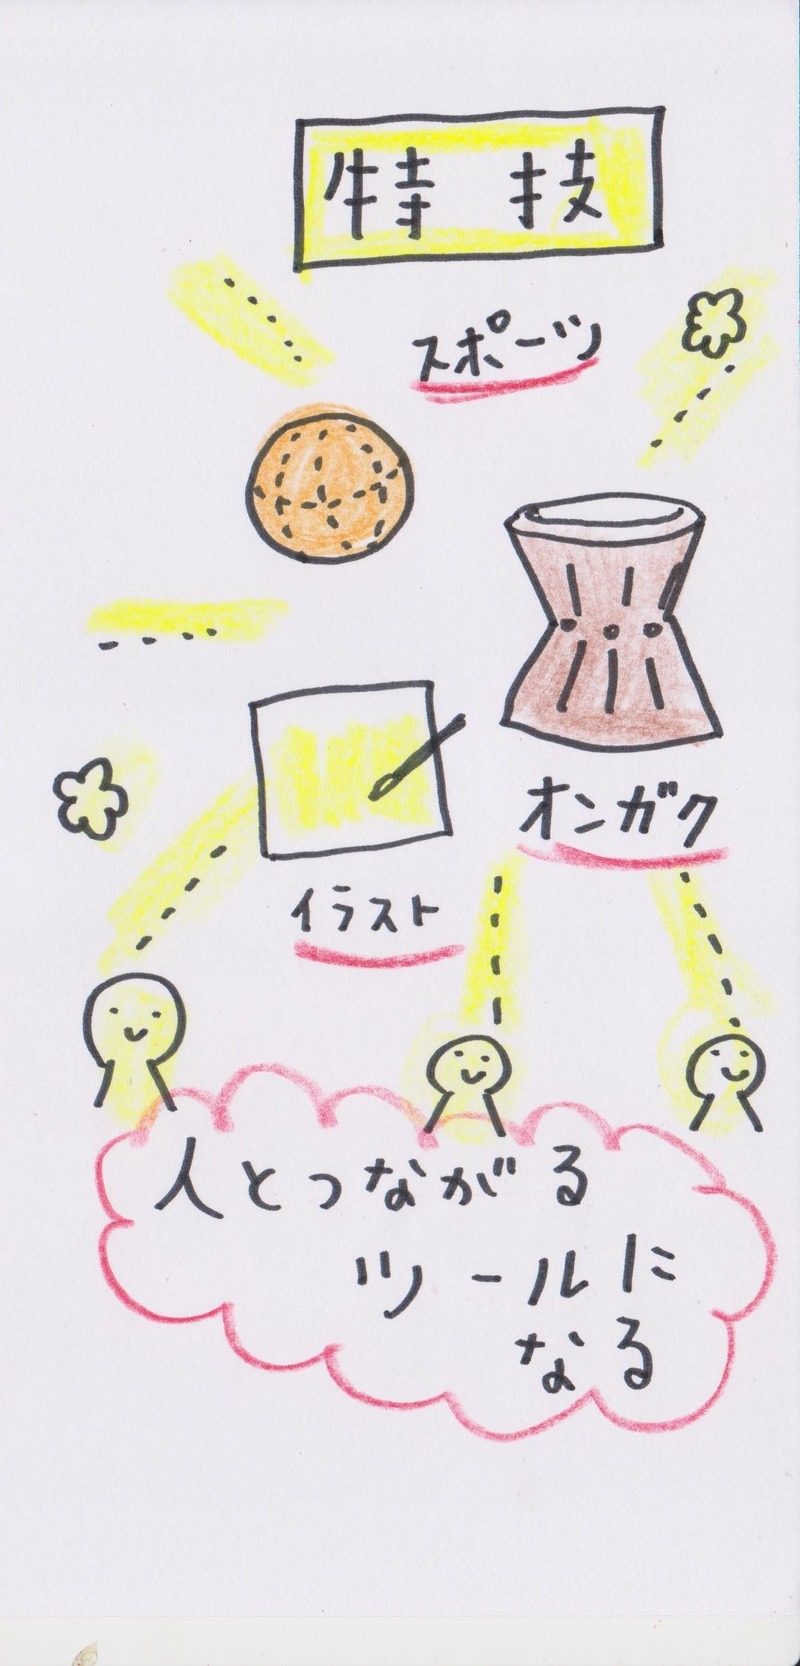 特技
スポーツ
オンガク
イラスト
人とつながる
ツールに
なる